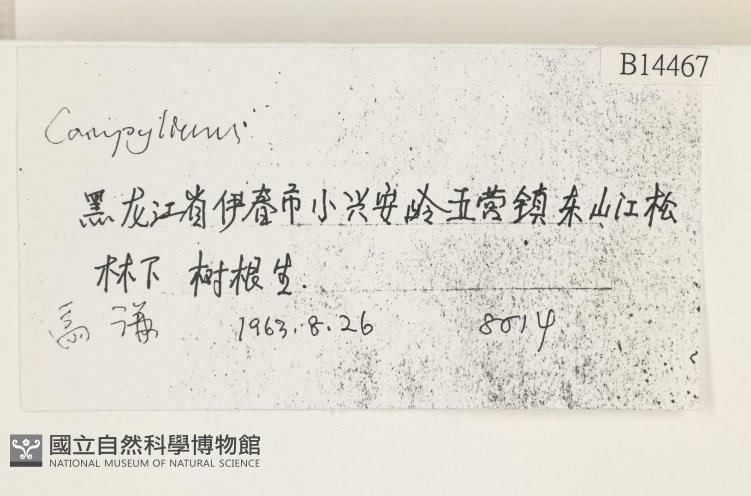 B14467
Campylium
黑龙江省伊春市小兴安岭五营镇东山江松
林下 树根生.
1963.8.26 8014
國立自然科學博物館
NATIONAL MUSEUM OF NATURAL SCIENCE